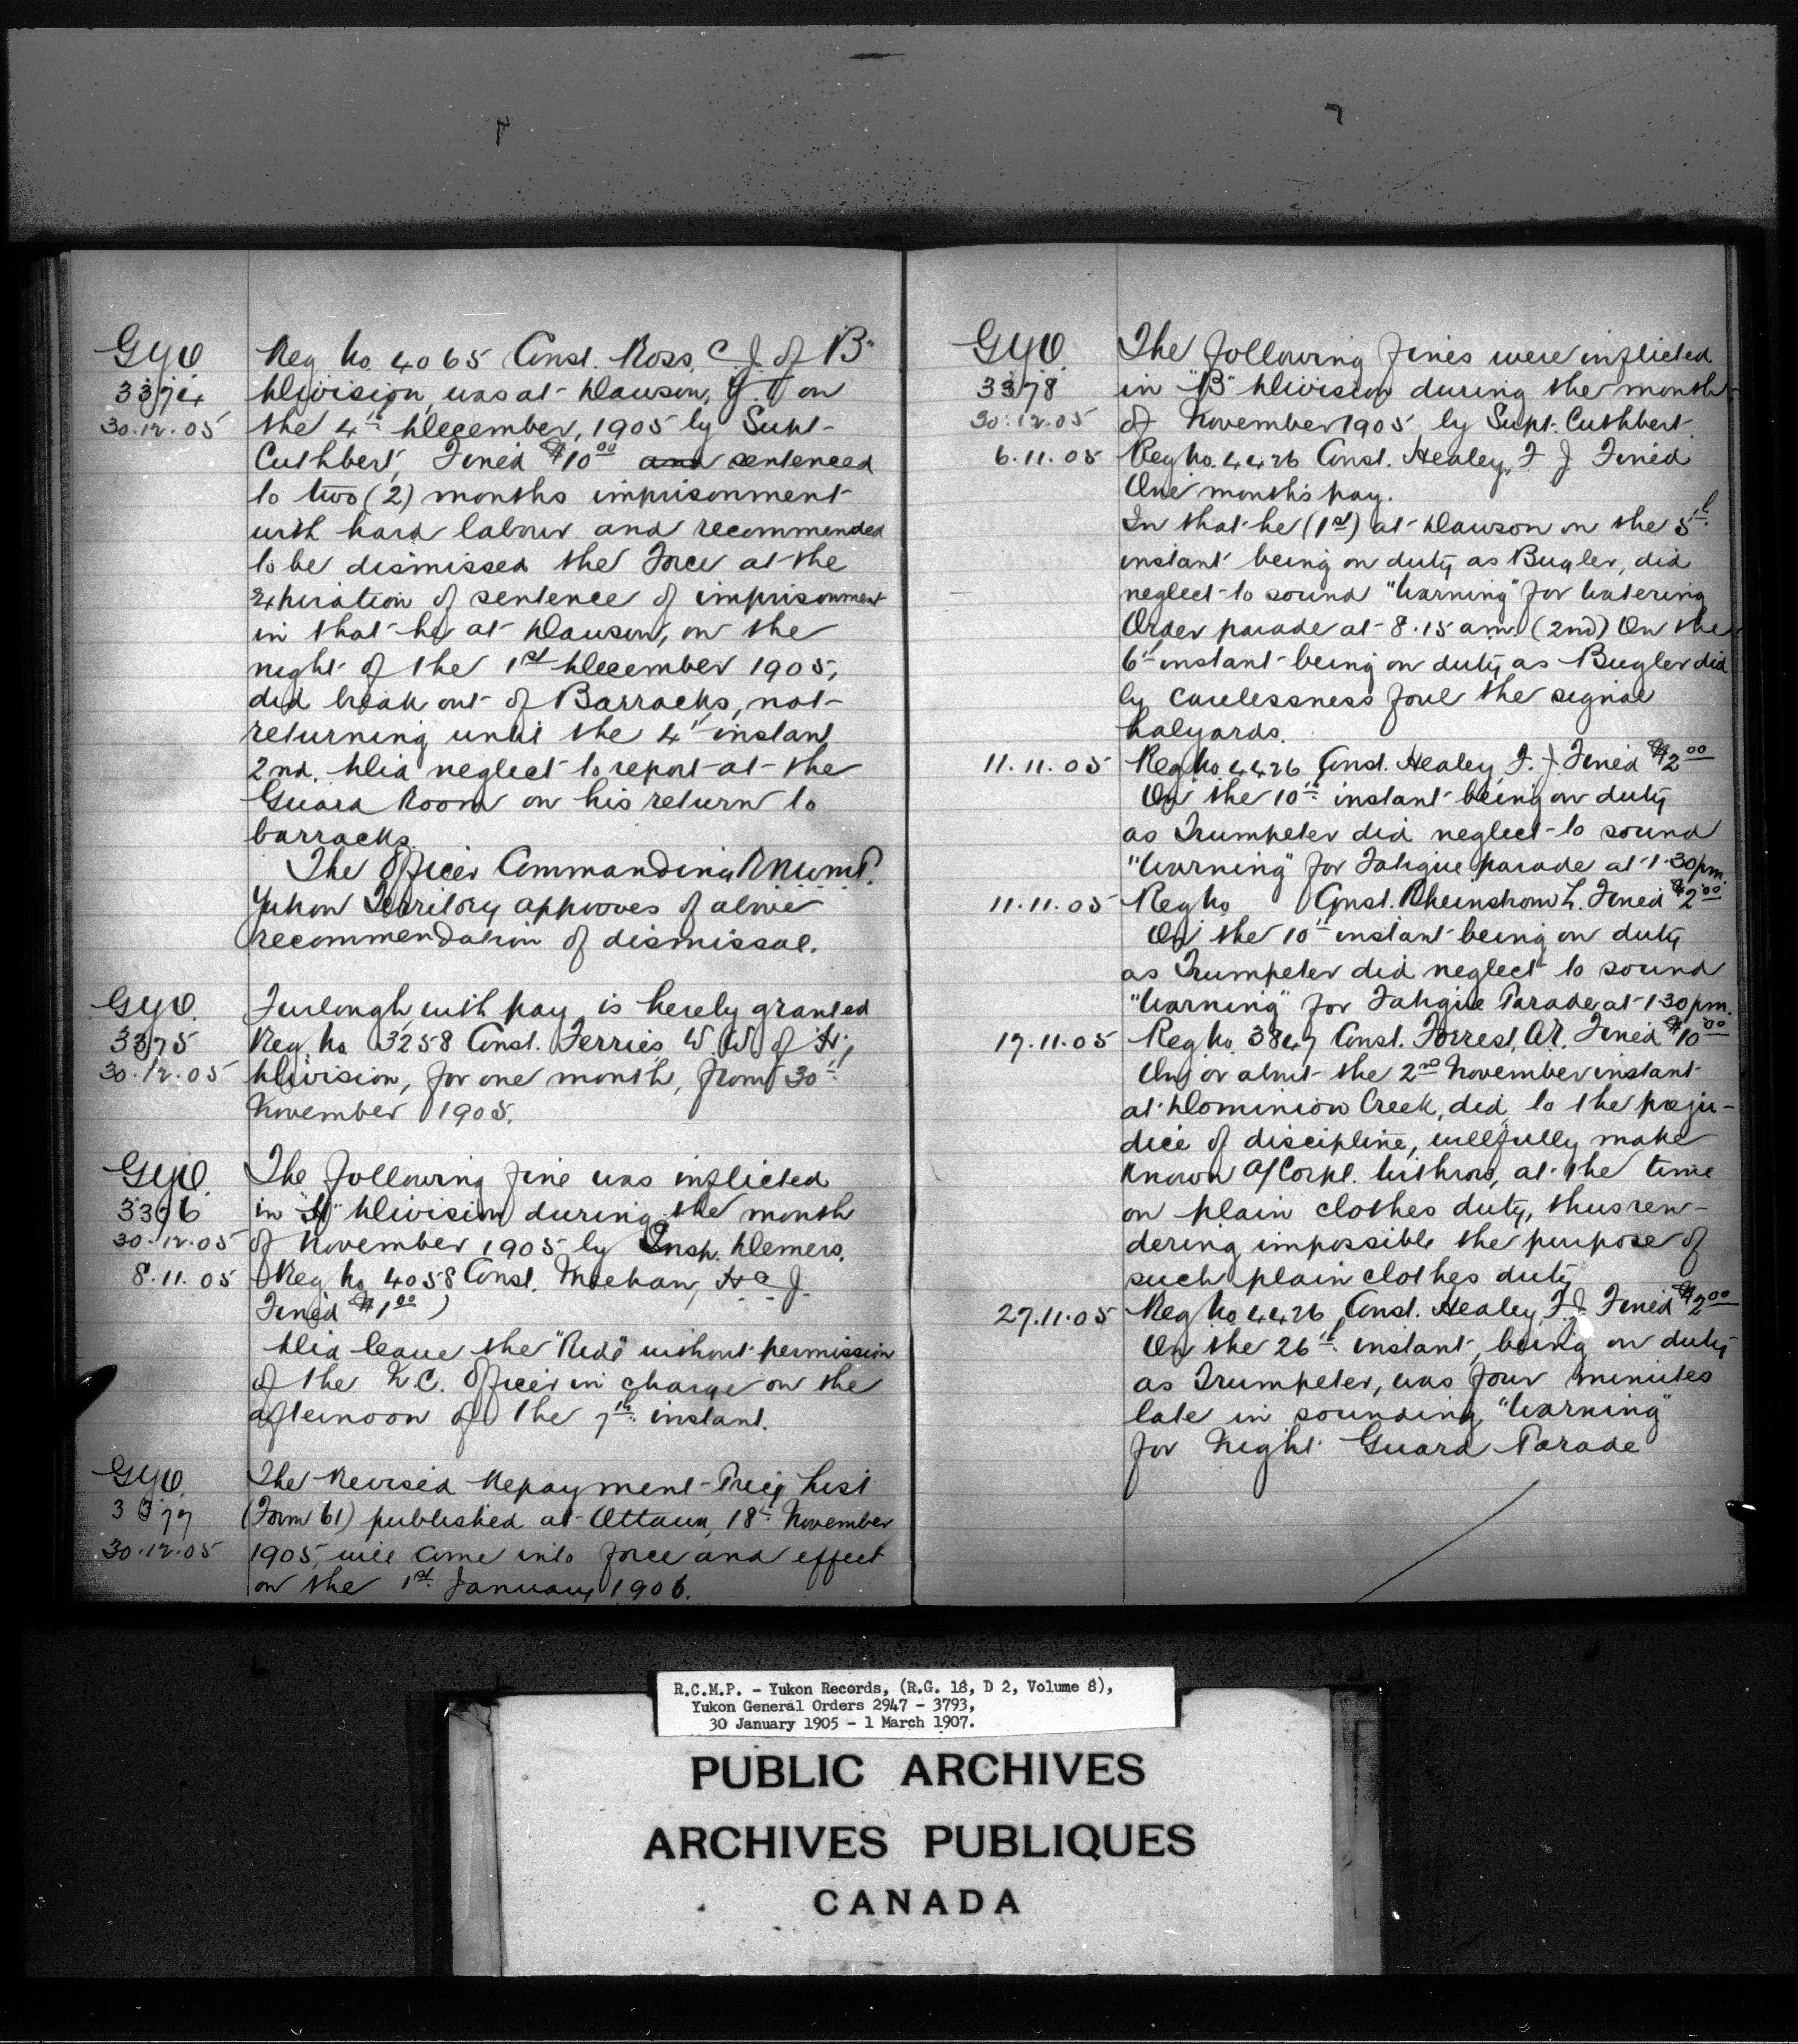 G.Y.O.
3374
30.12.05
Reg No 4065 Const. Ross, C. J. of "B"
Division, was at Dawson, Y.T. on
the 4th December, 1905 by Supt.
Cuthbert, Fined $10.00 and sentenced
to two (2) months imprisonment
with hard labour and recommended
to be dismissed the Force at the
expiration of sentence of imprisonment
in that he at Dawson, on the
night of the 1st December 1905,
did break out of Barracks, not
returning until the 4th instant
2nd. Did neglect to report at the
Guard Room on his return to
barracks.
The Officer Commanding R.N.W.M.P.
Yukon Territory approves of above
recommendation of dismissal.
G.Y.O.
3375
30.12.05
Furlough with pay is hereby granted
Reg No 3258 Const. Ferries W. W. of "H"
Division, for one month, from 30th
November 1905.
G.Y.O.
3376
30.12.05
The following fine was inflicted
in "H" Division during the month
of November 1905 by Insp. Demers.
8.11.05 Reg No 4058 Const. Meehan, H. J.
Fined $1.00
Did leave the "Ride" without permission
of the N.C. Officer in charge on the
afternoon of the 7th instant.
G.Y.O.
3377
30.12.05
The Revised Repayment Price List
(Form 61) published at Ottawa, 18th November
1905, will come into force and effect
on the 1st January 1906.
G.Y.O.
3378
30.12.05
The following fines were inflicted
in "B" Division during the month
of November 1905 by Supt. Cuthbert
6.11.05 Reg No. 4426 Const. Healey, F. J. Fined
One month's pay.
In that he (1st) at Dawson on the 5th
instant being on duty as Bugler, did
neglect to sound "Warning" for Watering
Order parade at 8.15 am. (2nd) On the
6th instant being on duty as Bugler did
by carelessness foul the signal
halyards.
11.11.05 Reg No 4426 Const. Healey, F. J. Fined $2.00
On the 10th instant being on duty
as Trumpeter did neglect to sound
"Warning" for Fatigue parade at 1.30 pm.
11.11.05 Reg No Const. Rheinstrom L. Fined $2.00
On the 10th instant being on duty
as Trumpeter did neglect to sound
"Warning" for Fatigue Parade at 1.30 pm.
17.11.05 Reg No 3847 Const. Forrest, A.R. Fined $10.00
On or about the 2nd November instant
at Dominion Creek, did to the preju-
dice of discipline, willfully make
known A/Corpl. Withrow, at the time
on plain clothes duty, thus ren-
dering impossible the purpose of
such plain clothes duty
27.11.05 Reg No 4426, Const. Healey F. J. Fined $2.00
On the 26th instant, being on duty
as Trumpeter, was four minutes
late in sounding "Warning"
for Night Guard Parade
R.C.M.P. - Yukon Records, (R.G. 18, D 2, Volume 8),
Yukon General Orders 2947 - 3793,
30 January 1905 - 1 March 1907.
PUBLIC ARCHIVES
ARCHIVES PUBLIQUES
CANADA